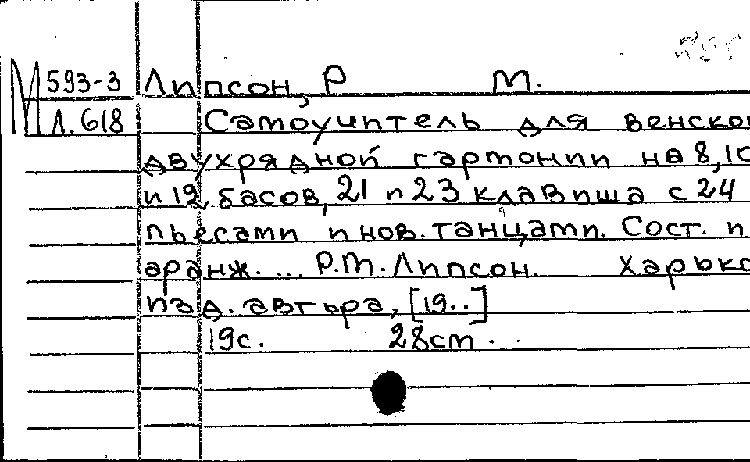 М 593-3 Липсон, Р М.
Л. 618 Самоучитель для венской
двухрядной гармонии на 8, 10
и 12 басов, 21 и 23 клавиша с 24
пьесами и нов. танцами. Сост. и
аранж. ... Р.М. Липсон. Харько
изд. автора, [19..]
19с. 28см.